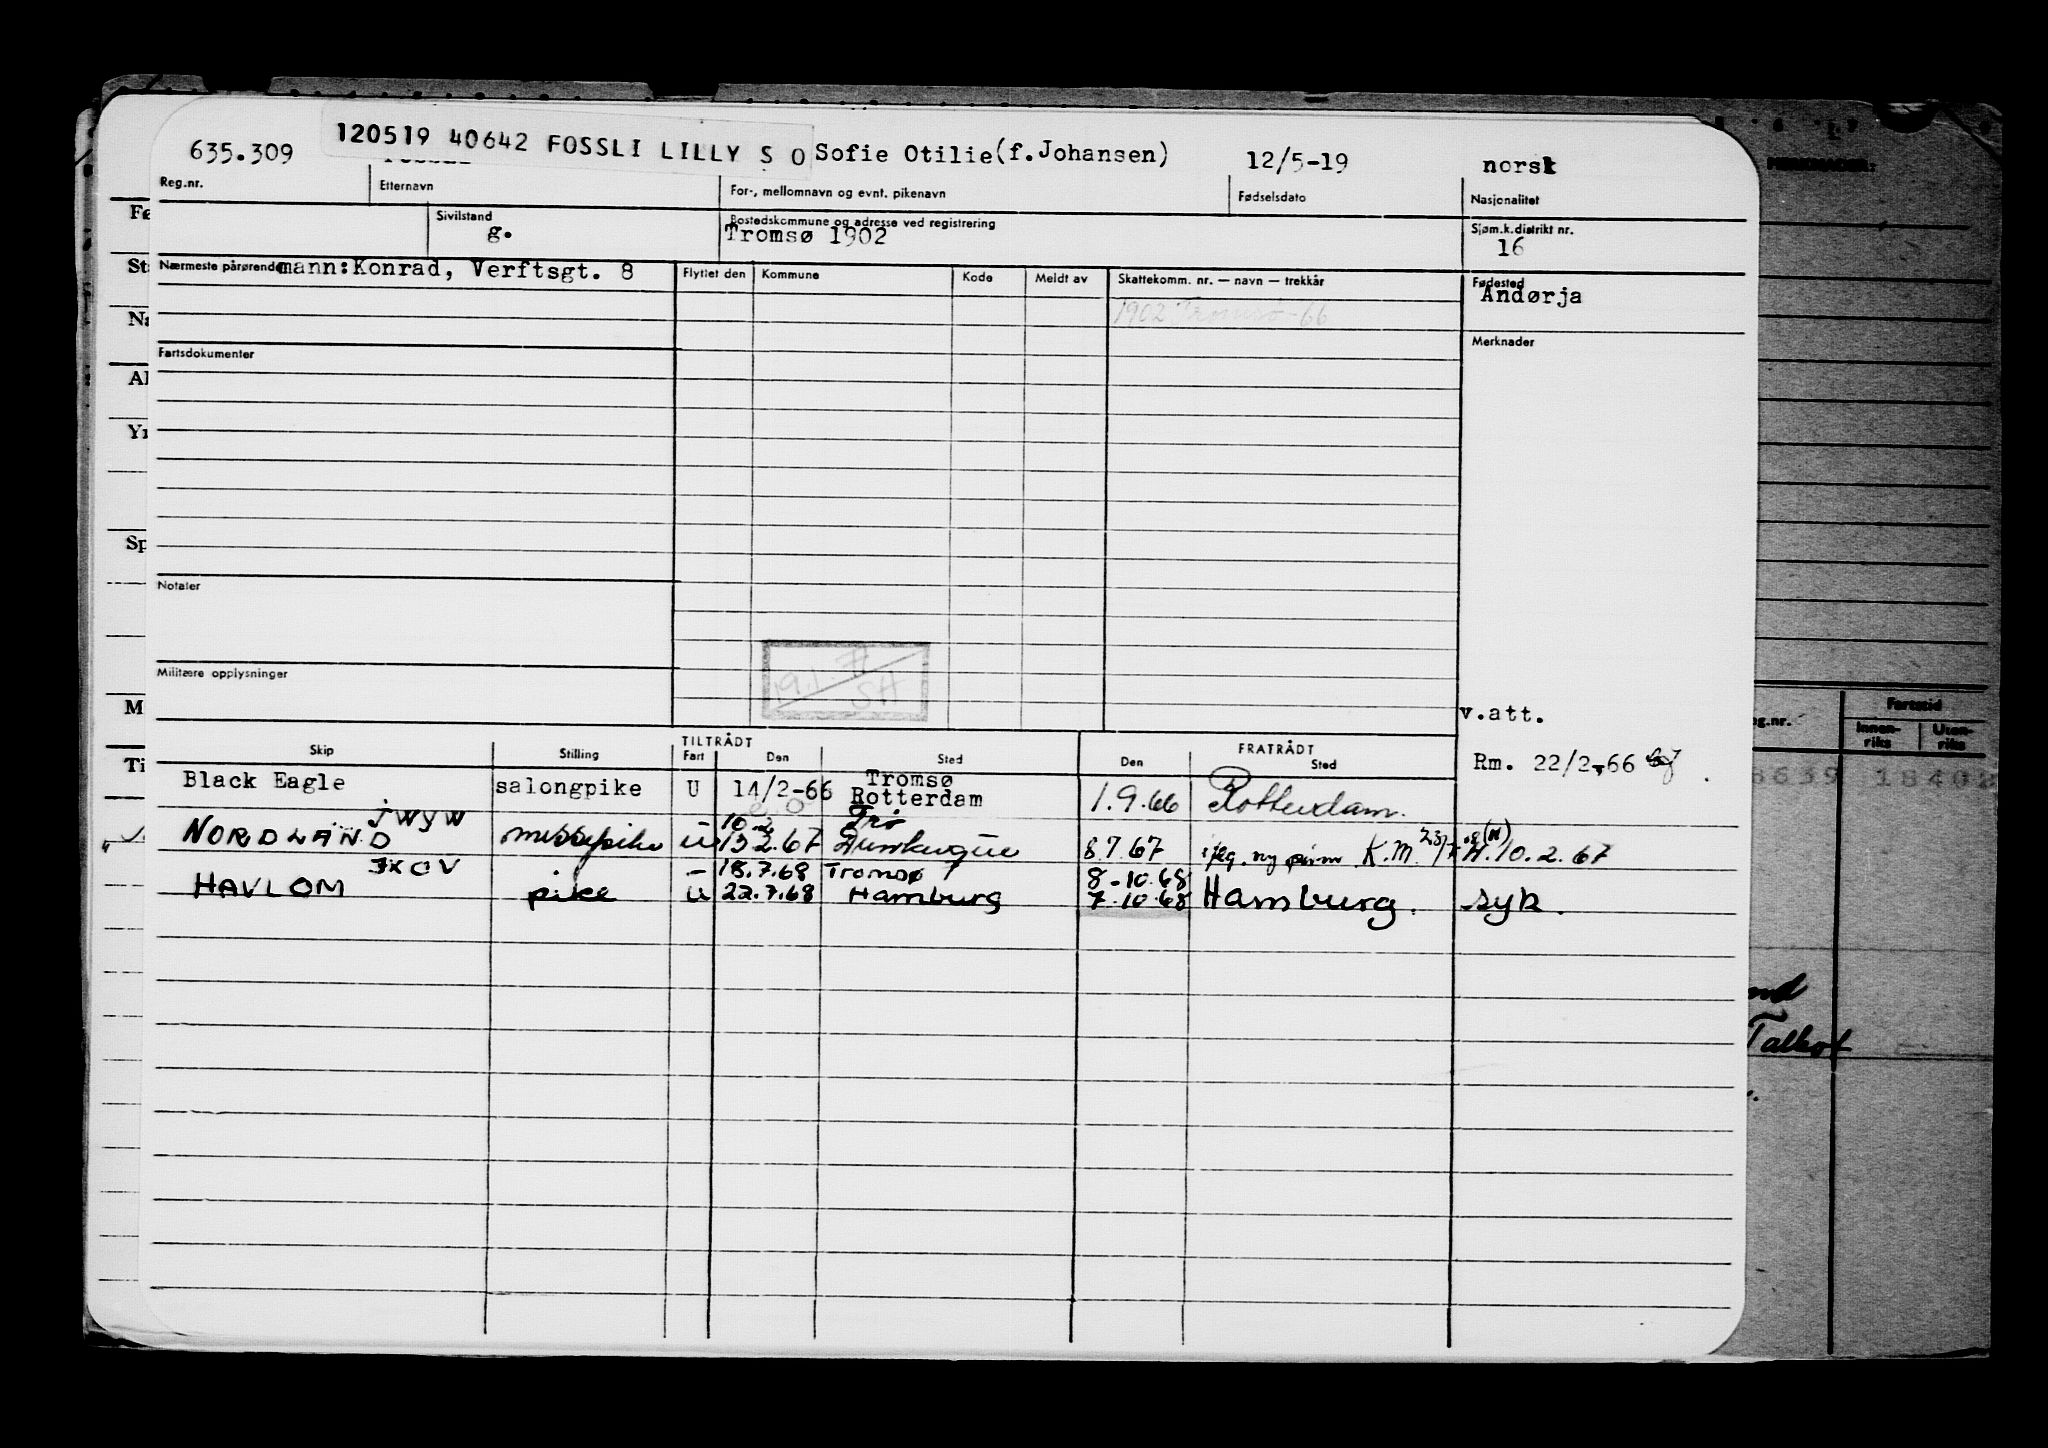 635.309 120519 40642 FOSSLI LILLY S O Sofie Otilie(f.Johansen) 12/5-19 norsk
Reg.nr. Etternavn For-, mellomnavn og evnt. pikenavn Fødselsdato Nasjonalitet
Sivilstand Bostedskommune og adresse ved registrering Sjøm.k.distrikt nr.
g. Tromsø 1902 16
Nærmeste pårørende mann:Konrad, Verftsgt. 8 Flyttet den Kommune Kode Meldt av Skattekomm. nr. — navn — trekkår Fødested
Andørja
1902 Tromsø-66
Fartsdokumenter Merknader
Notater
Militære opplysninger
SH
v.att.
Skip Stilling TILTRÅDT FRATRÅDT
Fart Den Sted Den Sted
Rm. 22/2-66
Black Eagle salongpike U 14/2-66 Tromsø
Rotterdam 1.9.66 Rotterdam.
JWYW 10.2 Trø
NORDLAND messepike U 13 2.67 Dunkerque 8.7.67 K.M. 10.2.67
JXOV – 18.7.68 Tromsø 8-10.68
HAVLOM pike U 22.7.68 Hamburg 7.10.68 Hamburg. syk.
Fø
St
Na
Al
Yr
Sp
M
Ti
MERKNADER:
g.nr. Fartstid
Innen-
riks Uten-
riks
8639 18402
Talbot